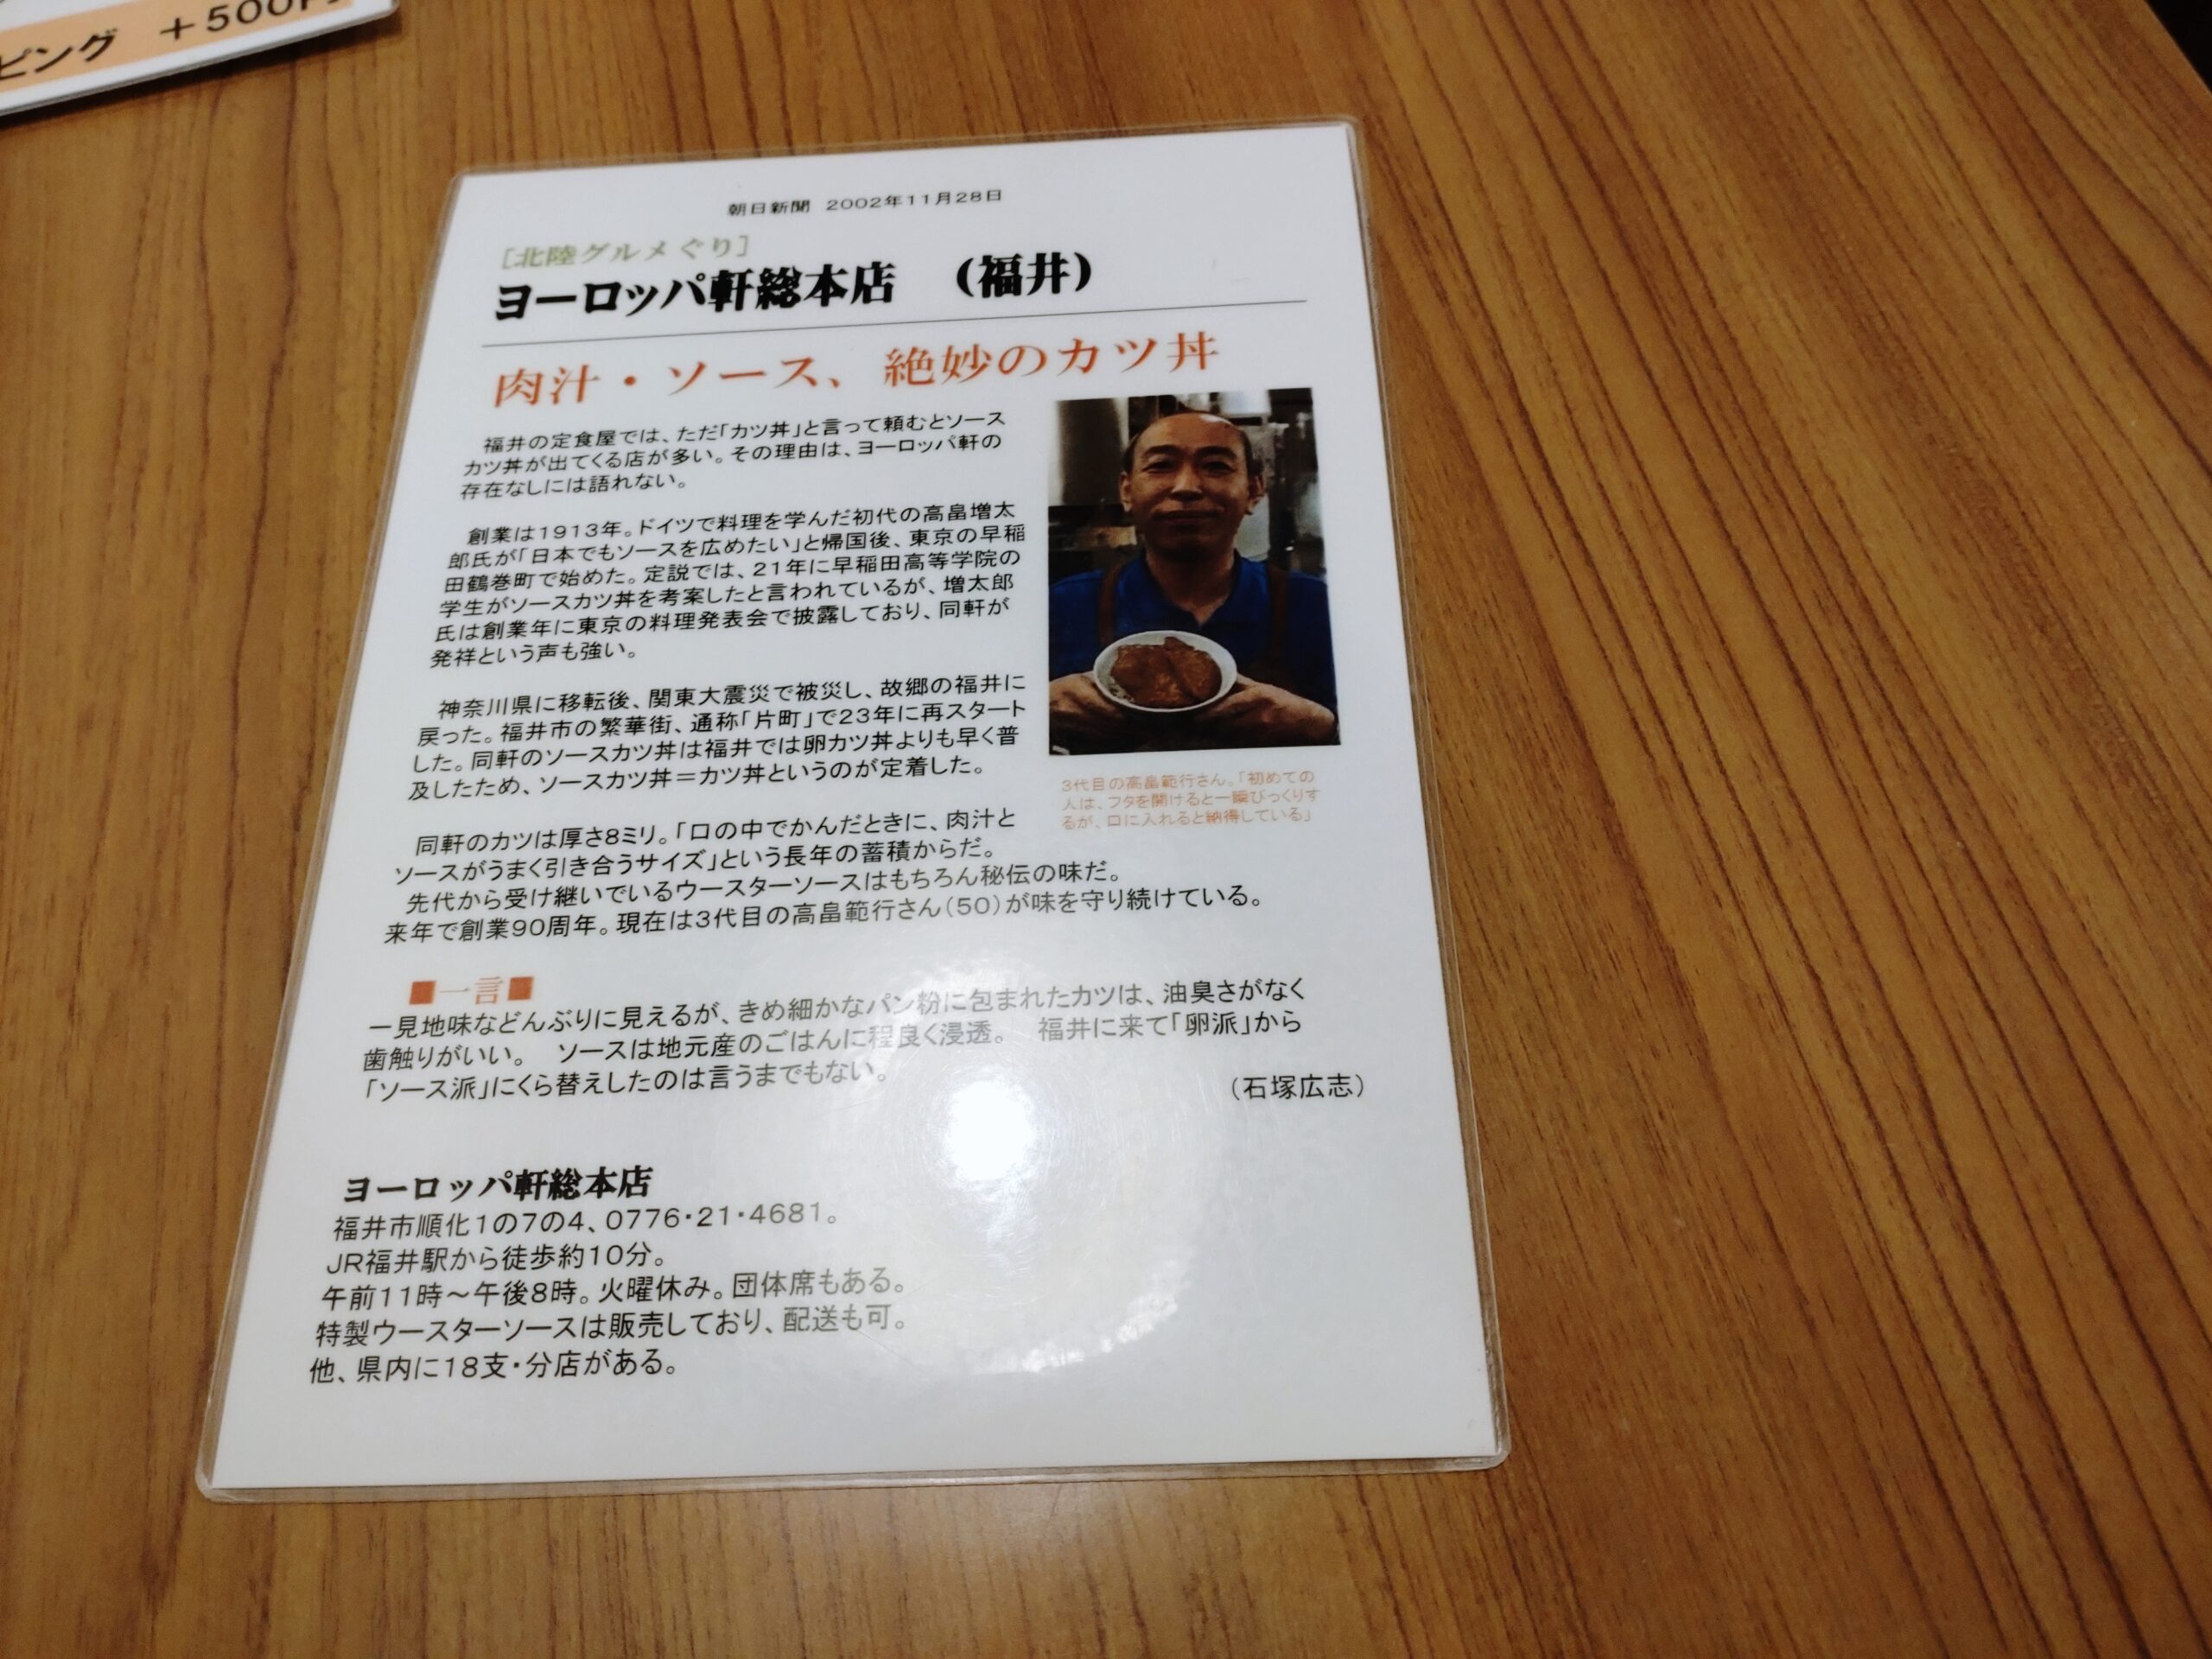 ピング ＋500円
朝日新聞 2002年11月28日
［北陸グルメめぐり］
ヨーロッパ軒総本店 （福井）
肉汁・ソース、絶妙のカツ丼
福井の定食屋では、ただ「カツ丼」と言って頼むとソース
カツ丼が出てくる店が多い。その理由は、ヨーロッパ軒の
存在なしには語れない。
創業は1913年。ドイツで料理を学んだ初代の高畠増太
郎氏が「日本でもソースを広めたい」と帰国後、東京の早稲
田鶴巻町で始めた。定説では、21年に早稲田高等学院の
学生がソースカツ丼を考案したと言われているが、増太郎
氏は創業年に東京の料理発表会で披露しており、同軒が
発祥という声も強い。
神奈川県に移転後、関東大震災で被災し、故郷の福井に
戻った。福井市の繁華街、通称「片町」で23年に再スタート
した。同軒のソースカツ丼は福井では卵カツ丼よりも早く普
及したため、ソースカツ丼＝カツ丼というのが定着した。
同軒のカツは厚さ8ミリ。「口の中でかんだときに、肉汁と
ソースがうまく引き合うサイズ」という長年の蓄積からだ。
先代から受け継いでいるウースターソースはもちろん秘伝の味だ。
来年で創業90周年。現在は3代目の高畠範行さん（50）が味を守り続けている。
3代目の高畠範行さん。「初めての
人は、フタを開けると一瞬びっくりす
るが、口に入れると納得している」
■一言■
一見地味などんぶりに見えるが、きめ細かなパン粉に包まれたカツは、油臭さがなく
歯触りがいい。 ソースは地元産のごはんに程良く浸透。 福井に来て「卵派」から
「ソース派」にくら替えしたのは言うまでもない。
（石塚広志）
ヨーロッパ軒総本店
福井市順化1の7の4、0776・21・4681。
JR福井駅から徒歩約10分。
午前11時～午後8時。火曜休み。団体席もある。
特製ウースターソースは販売しており、配送も可。
他、県内に18支・分店がある。